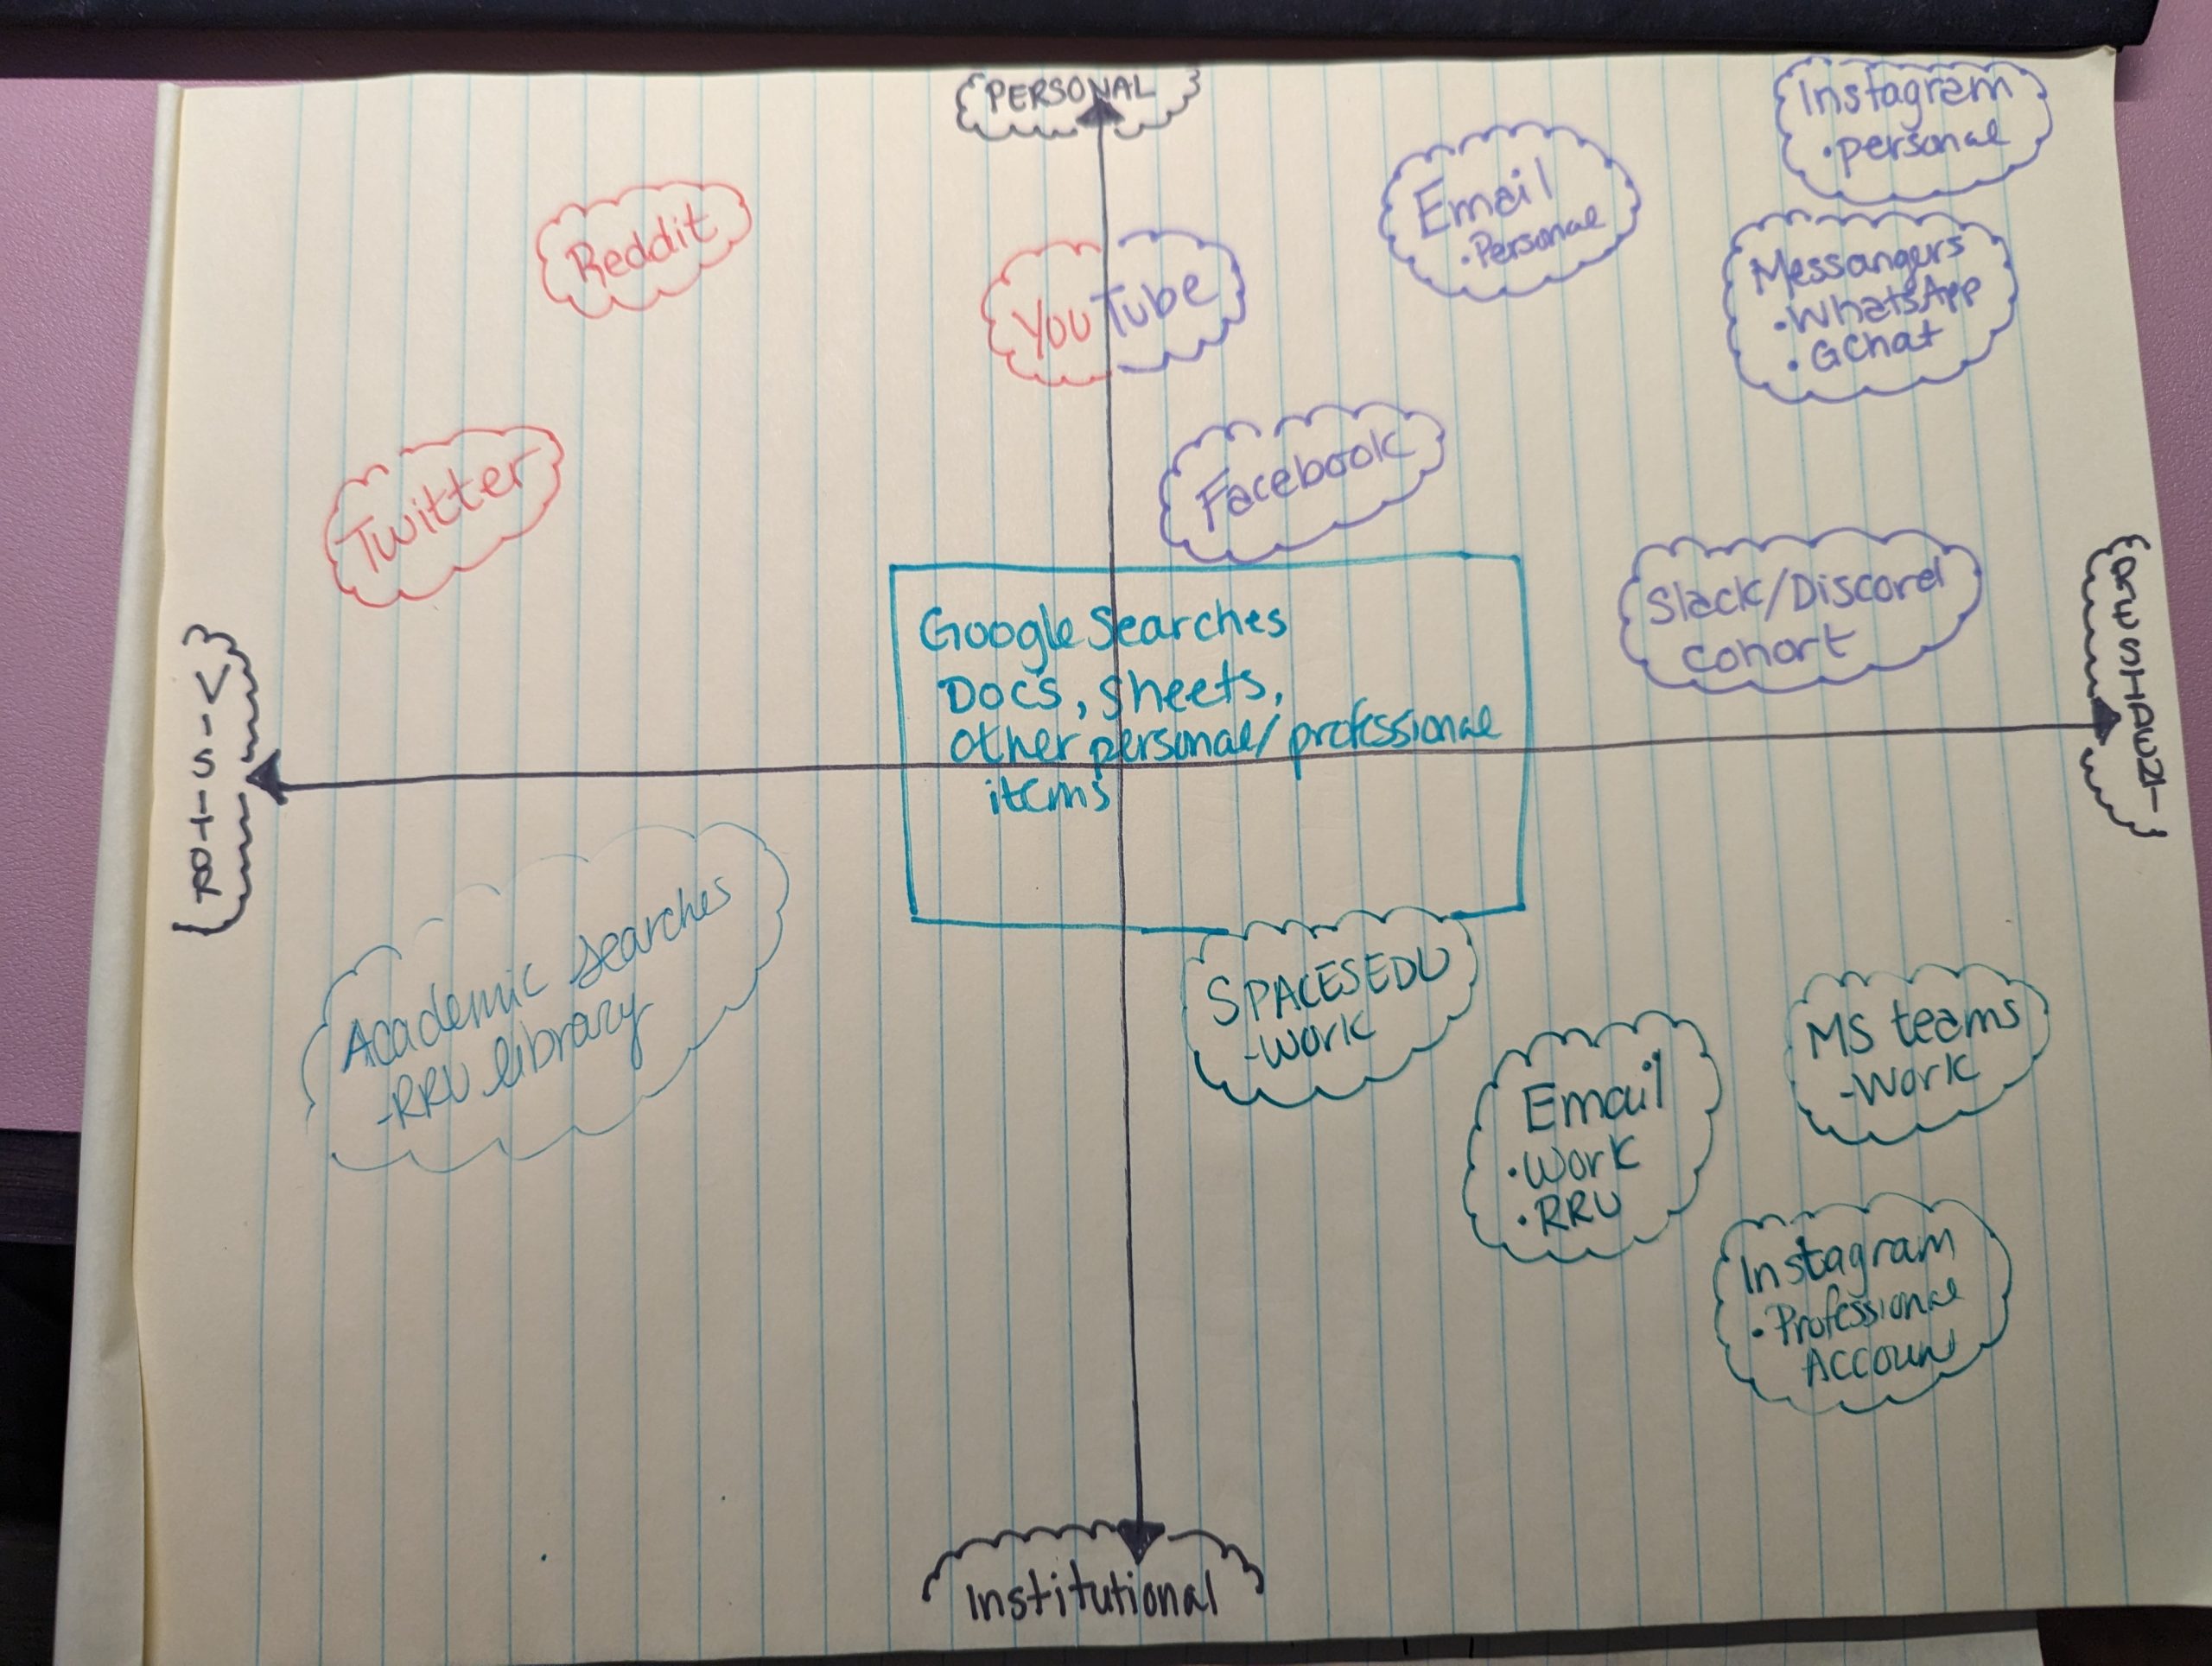 PERSONAL
Instagram
• personal
Email
• Personal
Reddit
Messangers
• WhatsApp
• GChat
YouTube
Facebook
Twitter
Slack/Discord
cohort
Google Searches
Docs, sheets,
other personal/professional
items
Academic searches
- RRU library
SPACESEDU
- work
MS teams
- work
Email
• work
• RRU
Instagram
• Professional
Account
Institutional